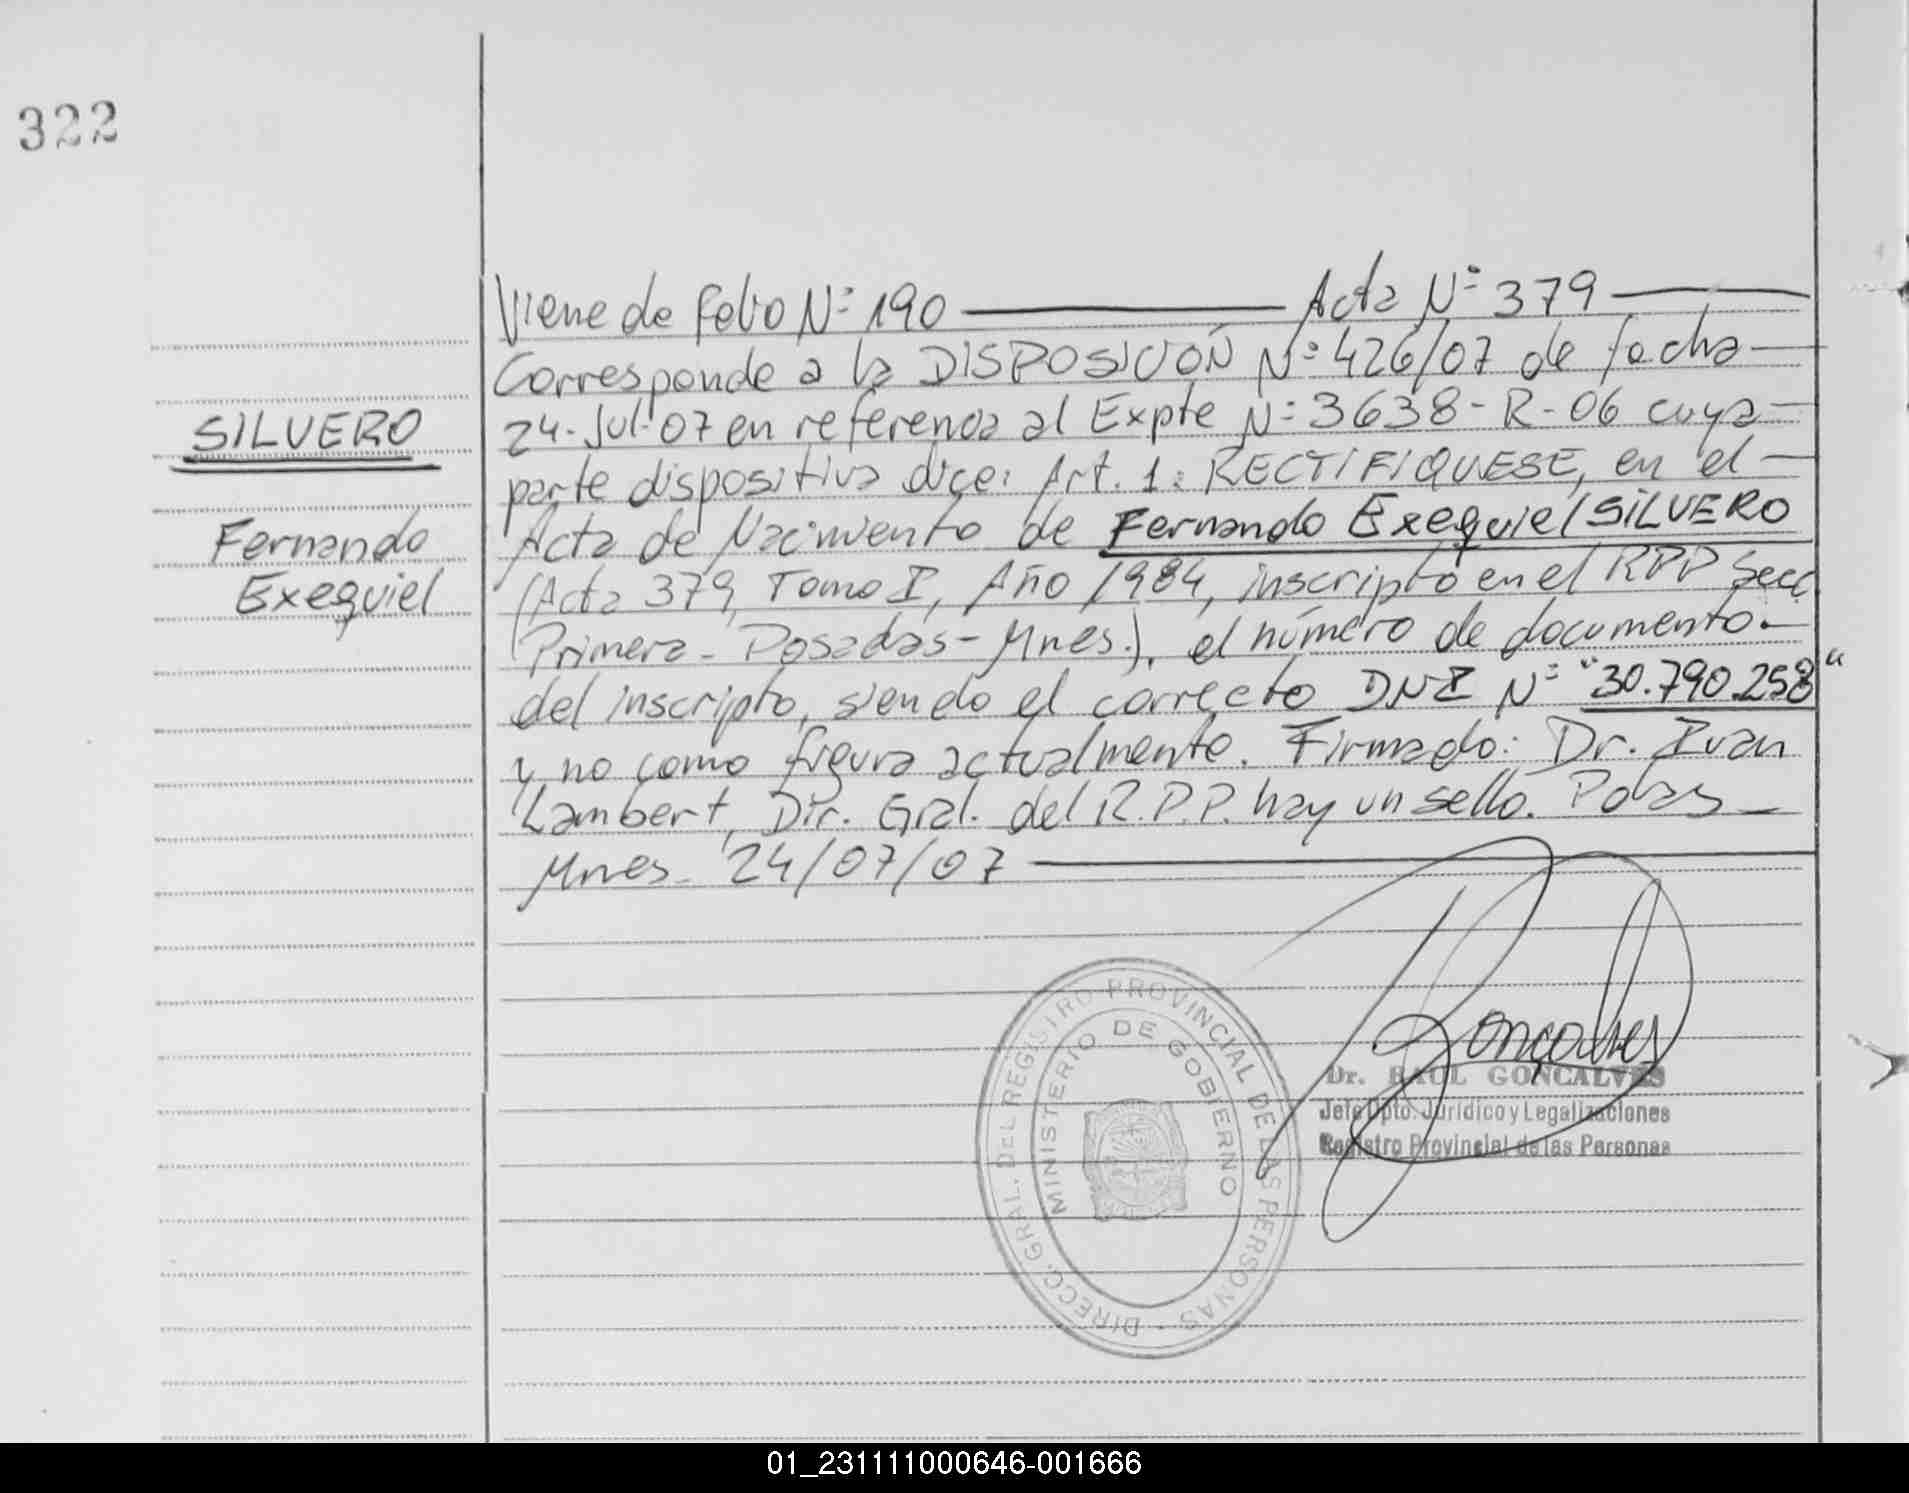 322
SILVERO
Fernando
Exequiel
Viene de folio Nº 190 Acta Nº 379
Corresponde a la DISPOSICIÓN Nº 426/07 de fecha
24-Jul-07 en referencia al Expte Nº 3638-R-06 cuya
parte dispositiva dice: Art. 1: RECTIFIQUESE, en el
Acta de Nacimiento de Fernando Exequiel SILVERO
(Acta 379, Tomo I, Año 1984, inscripto en el RPP Secc
Primera - Posadas - Mnes.), el número de documento.
del inscripto, siendo el correcto DNI Nº "30.790.258"
y no como figura actualmente. Firmado: Dr. Ivan
Lambert, Dir. Gral. del R.P.P. hay un sello. Pdas
Mnes. 24/07/07
DIRECC. GRAL. DEL REGISTRO PROVINCIAL DE LAS PERSONAS -
MINISTERIO DE GOBIERNO
Goncalves
Dr. RAUL GONCALVES
Jefe Dpto. Jurídico y Legalizaciones
Registro Provincial de las Personas
01_231111000646-001666